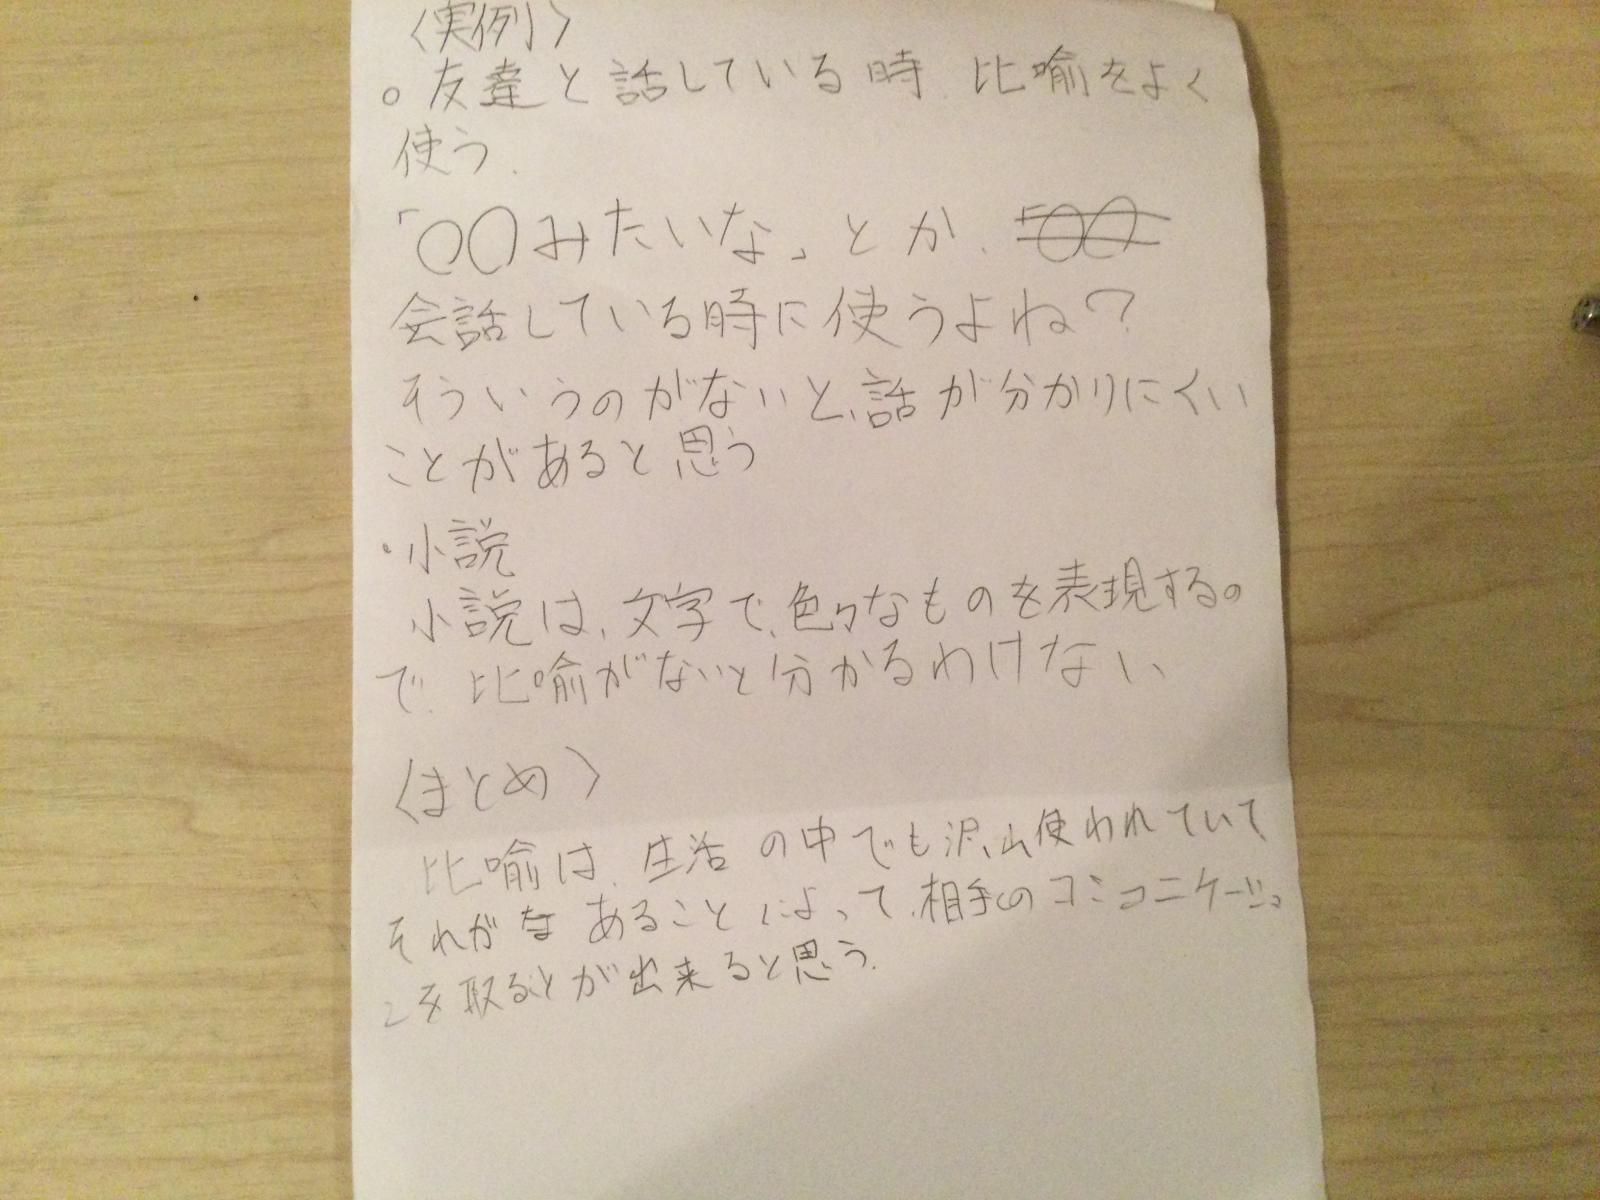 〈実例〉
○友達と話している時、比喩をよく
使う.
「○○みたいな」とか、
会話している時に使うよね?
そういうのがないと、話が分かりにくい
ことがあると思う
・小説
小説は、文字で、色々なものを表現する。
で、比喩がないと分かるわけない
〈まとめ〉
比喩は、生活の中でも沢山使われていて
それがあることによって、相手とのコミュニケーショ
ンを取ることが出来ると思う.